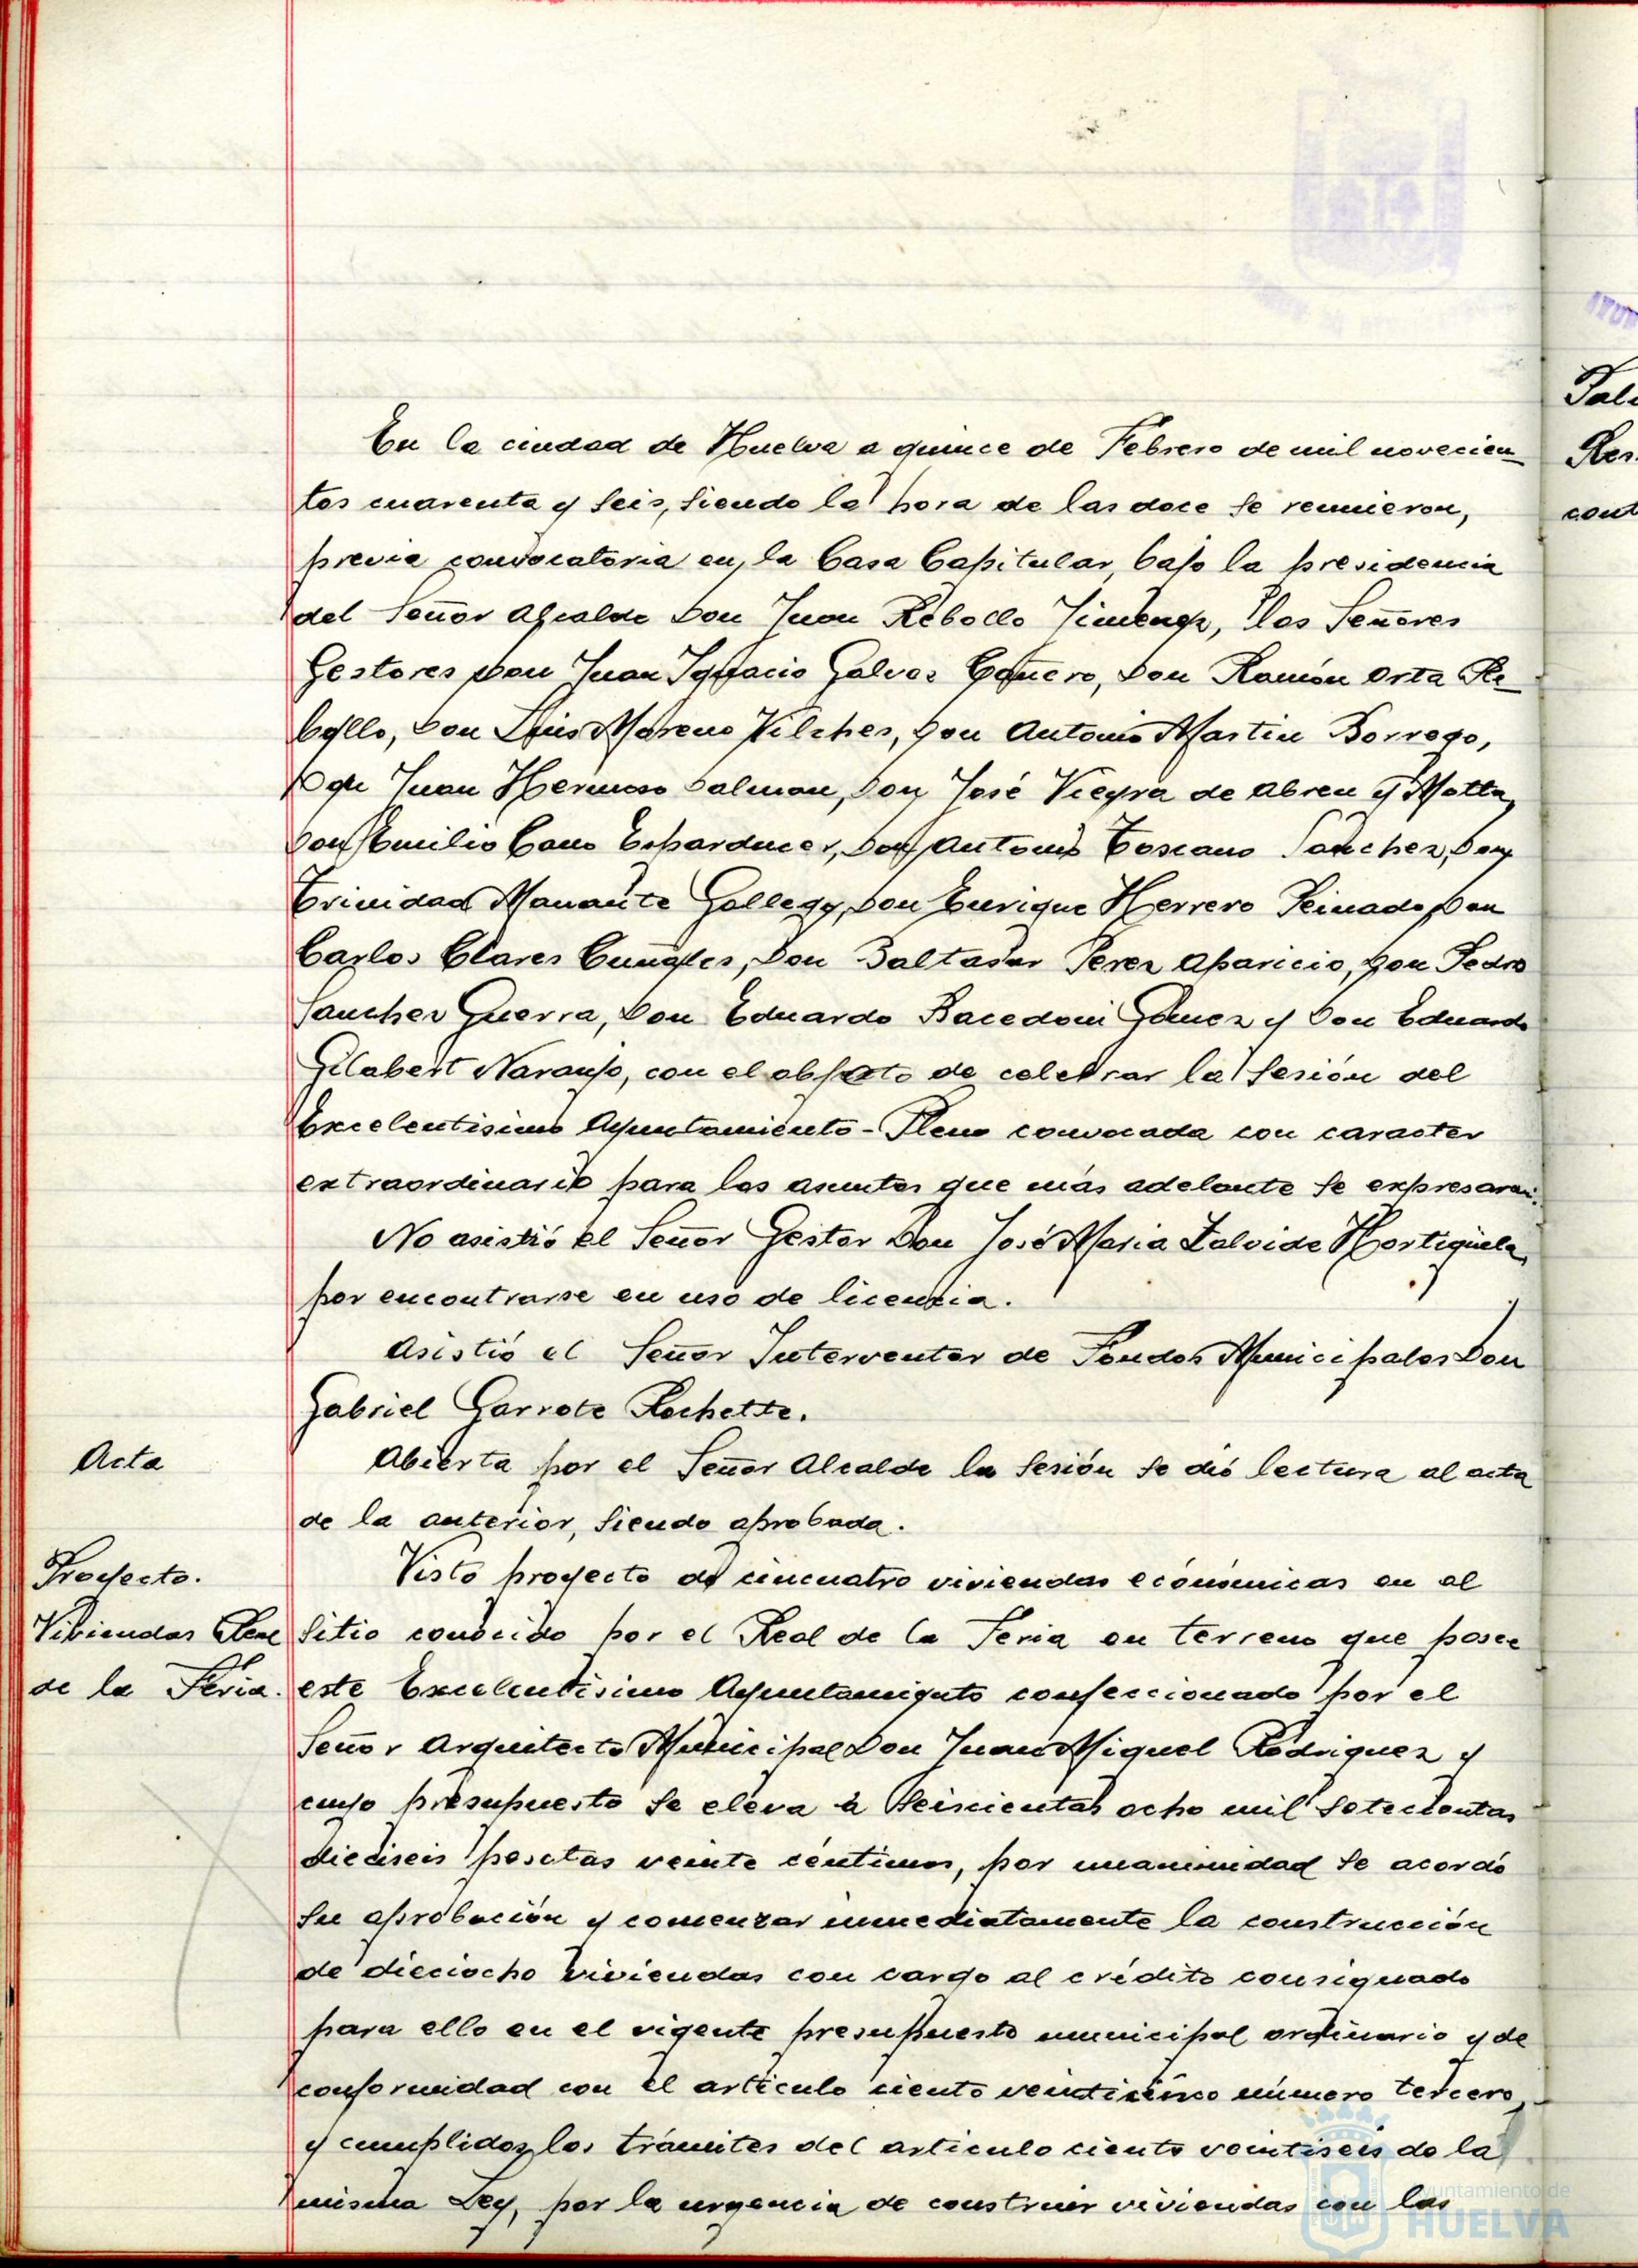 En la ciudad de Huelva a quince de Febrero de mil novecien_
tos cuarenta y seis, siendo la hora de las doce se reunieron,
previa convocatoria en la Casa Capitular, bajo la presidencia
del Señor Alcalde Don Juan Rebollo Jimenez, los Señores
Gestores Don Juan Ignacio Galvez Cañero, Don Ramón Orta Re_
bollo, Don Luis Moreno Vilches, Don Antonio Martin Borrego,
Don Juan Hermoso Dalmau, Don José Vieyra de Abreu y Motta,
Don Emilio Cano Don Antonio Toscano Sanchez, Don
Trinidad Manante Gallego, Don Enrique Herrero Peinado, Don
Carlos Clares Don Baltasar Perez Aparicio, Don Pedro
Sanchez Guerra, Don Eduardo Bacedoni Gomez y Don Eduardo
Gilabert Naranjo, con el objeto de celebrar la sesión del
Excelentisimo Ayuntamiento-Pleno convocada con caracter
extraordinario para los asuntos que más adelante se expresaran.
No asistió el Señor Gestor Don José Maria Zalvide Hortigüela,
por encontrarse en uso de licencia.
Asistió el Señor Interventor de Fondos Municipales Don
Gabriel Garrote Rochette.
Acta
Abierta por el Señor Alcalde la sesión se dió lectura al acta
de la anterior, siendo aprobada.
Proyecto.
Viviendas Real
de la Feria.
Visto proyecto de viviendas económicas en el
sitio conocido por el Real de la Feria en terreno que posee
este Excelentisimo Ayuntamiento confeccionado por el
Señor Arquitecto Municipal Don Juan Miguel Rodriguez y
cuyo presupuesto se eleva a seiscientas ocho mil setecientas
dieciseis pesetas veinte céntimos, por unanimidad se acordó
su aprobación y comenzar inmediatamente la construcción
de dieciocho viviendas con cargo al crédito consignado
para ello en el vigente presupuesto municipal ordinario y de
conformidad con el articulo ciento veinticinco número tercero,
y cumplidos los trámites del articulo ciento veintiseis de la
misma Ley, por la urgencia de construir viviendas con las
Ayuntamiento de
HUELVA